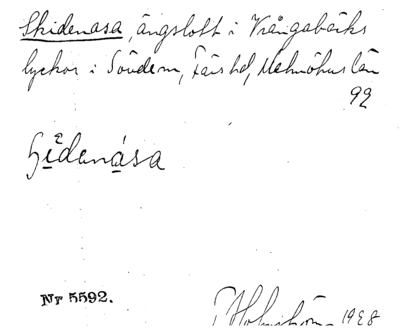 Skidenasa, ängslott i Vrångabäcks
lyckor i Sövdem, Färs hd, Malmöhus län
92
Nr 5592.
1928